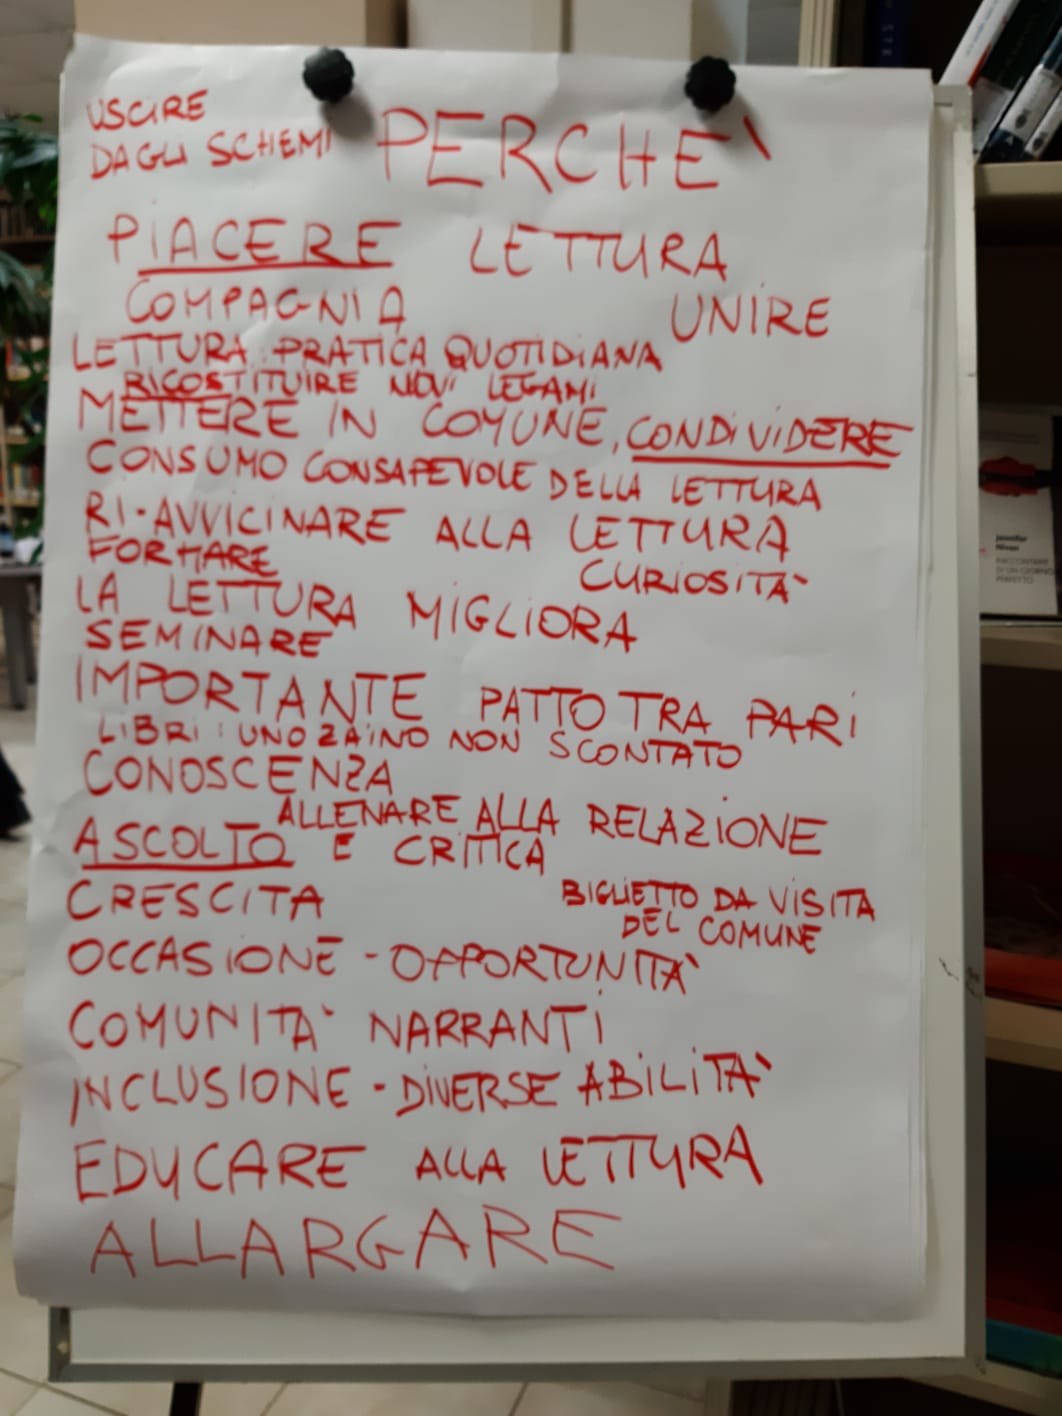 USCIRE
DAGLI SCHEMI
PERCHE'
PIACERE LETTURA
COMPAGNIA UNIRE
LETTURA: PRATICA QUOTIDIANA
RICOSTITUIRE NOVI LEGAMI
METTERE IN COMUNE, CONDIVIDERE
CONSUMO CONSAPEVOLE DELLA LETTURA
RI-AVVICINARE ALLA LETTURA
FORMARE CURIOSITA'
LA LETTURA MIGLIORA
SEMINARE
IMPORTANTE PATTO TRA PARI
LIBRI: UNO ZAINO NON SCONTATO
CONOSCENZA
ALLENARE ALLA RELAZIONE
ASCOLTO E CRITICA
CRESCITA BIGLIETTO DA VISITA
DEL COMUNE
OCCASIONE - OPPORTUNITA'
COMUNITA' NARRANTI
INCLUSIONE - DIVERSE ABILITA'
EDUCARE ALLA LETTURA
ALLARGARE
Jennifer
Niven
RACCONTAMI
DI UN GIORNO
PERFETTO